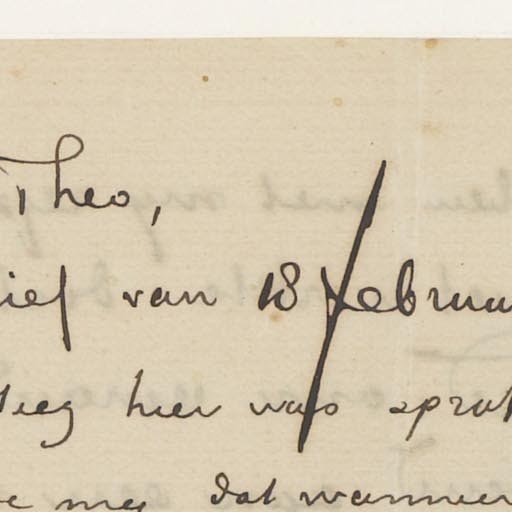 Theo,
ief van 18 februa
teeg hier was sprak
e mij dat wanneer